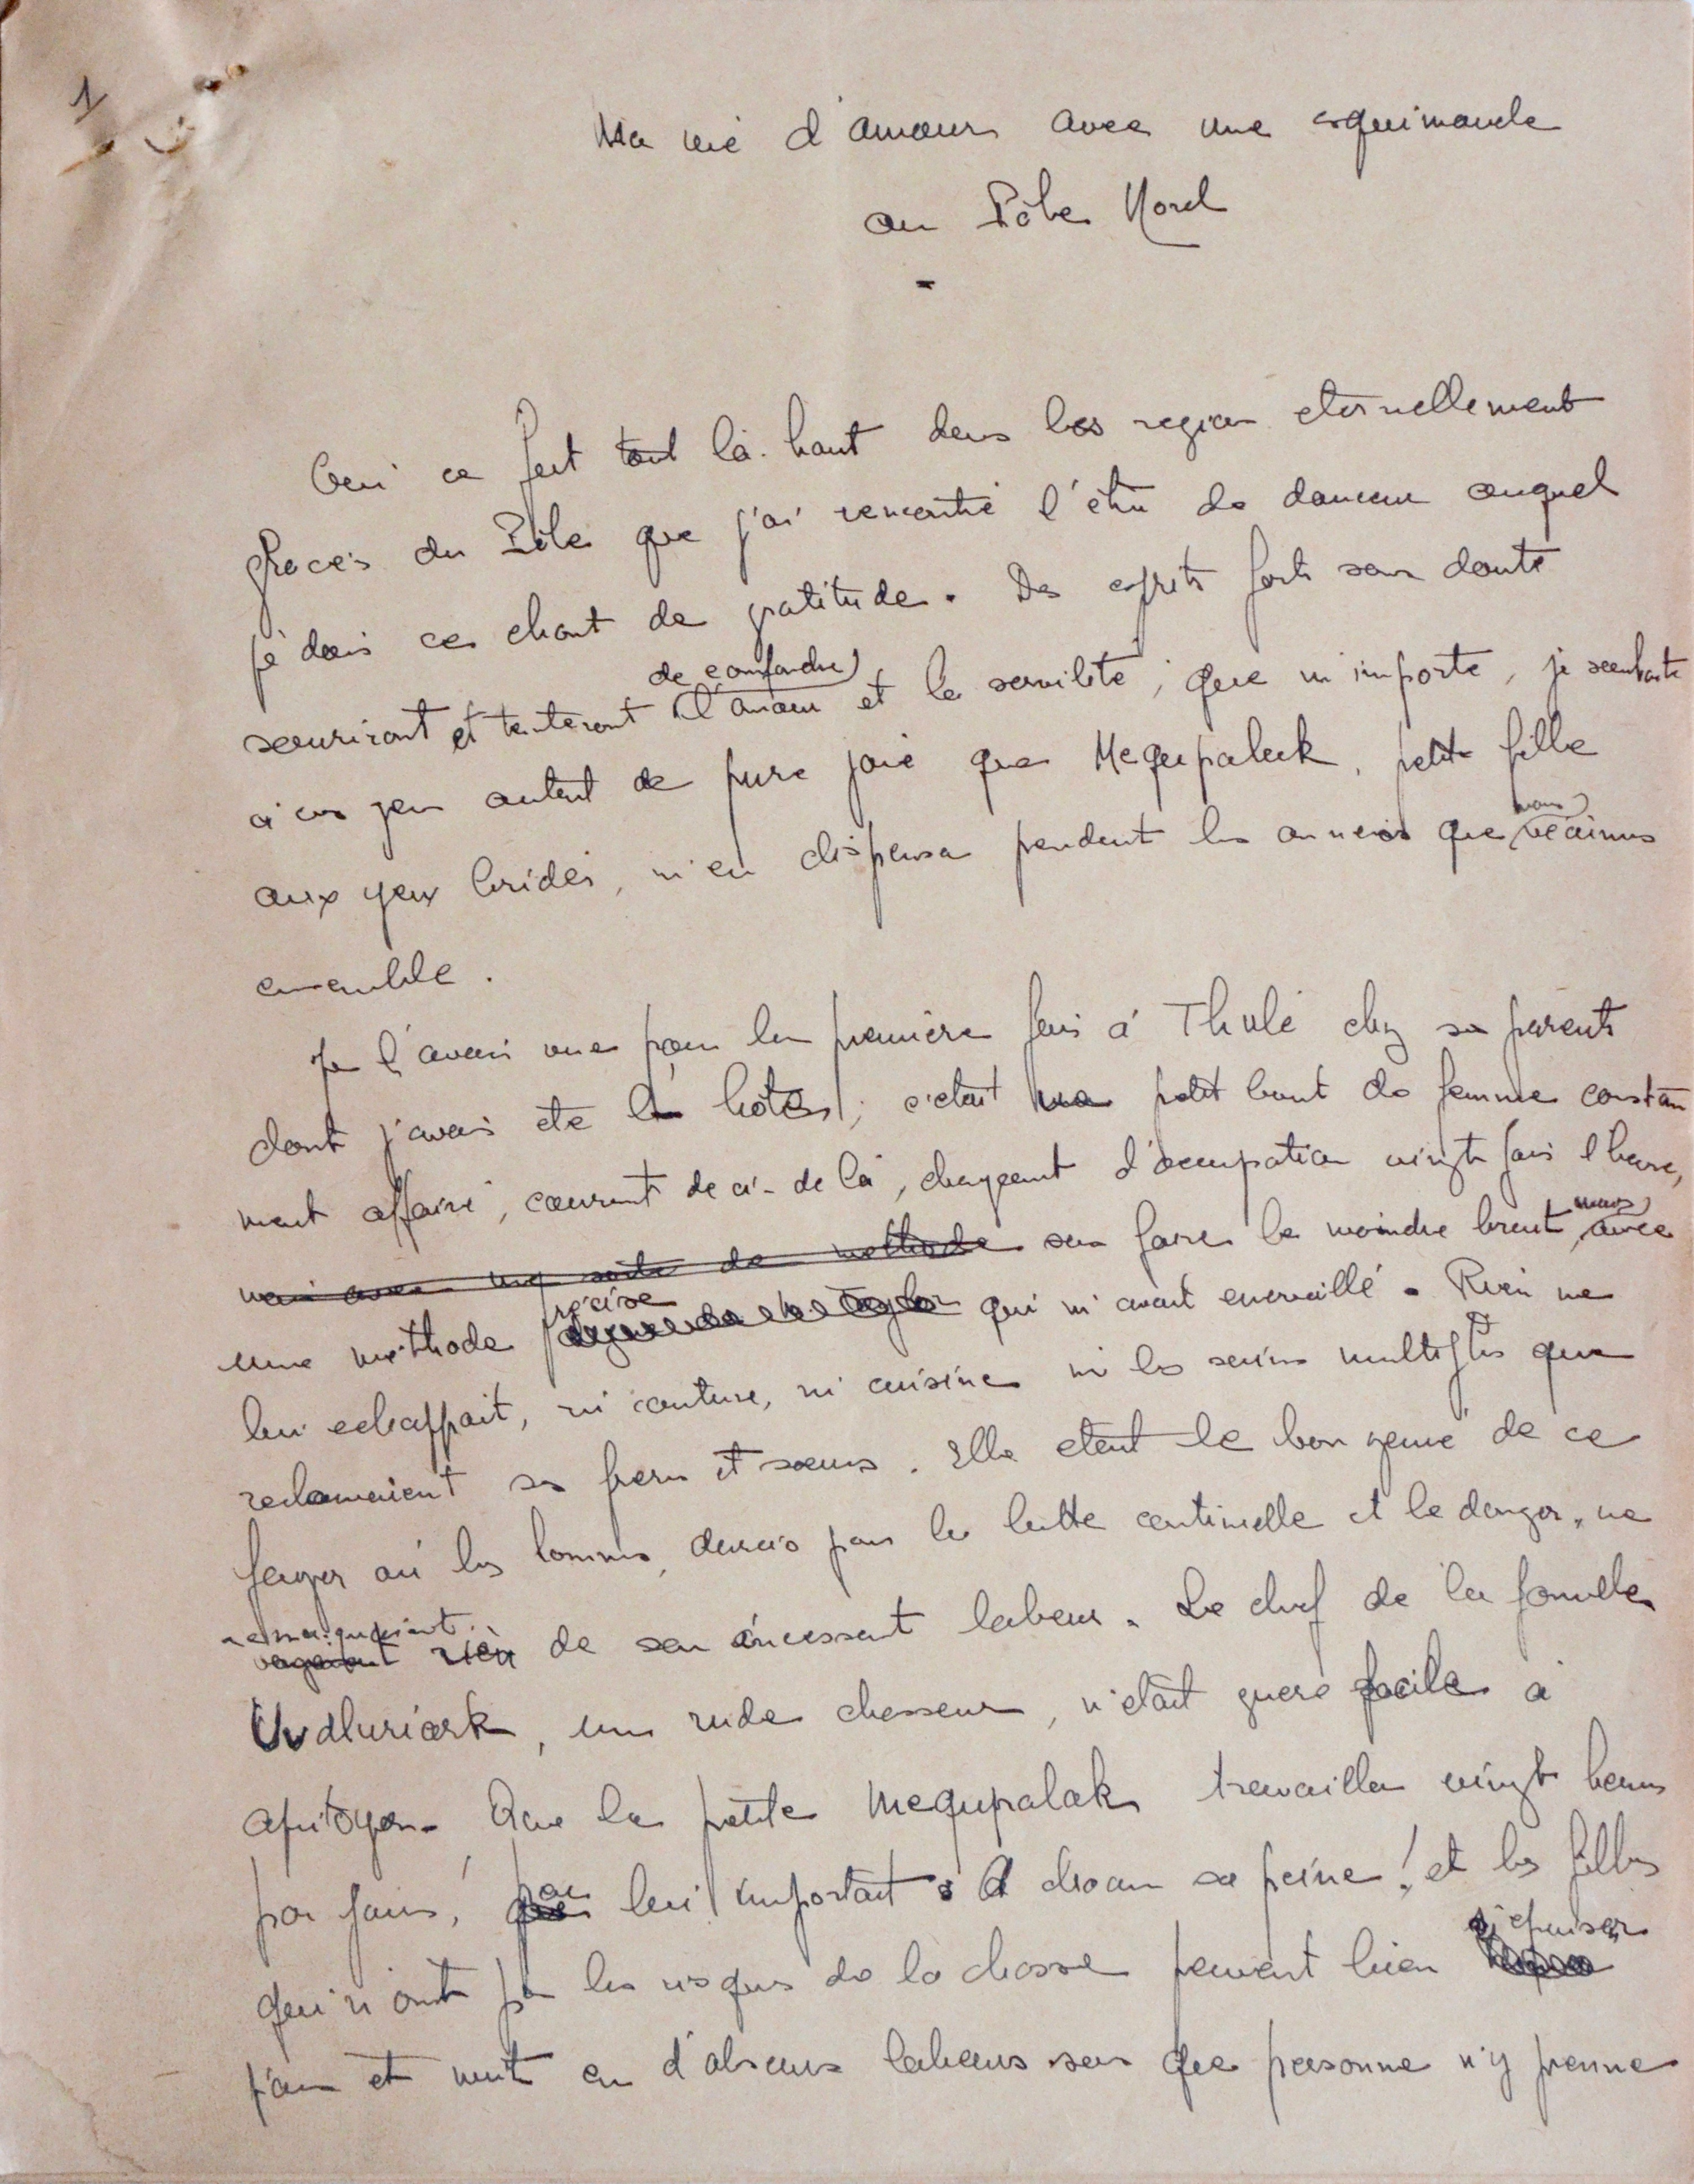 1
Ma vie d'amour avec une esquimaude
au Pôle Nord
-
Oui ce fut tout là-haut dans les region eternellement
glacés du Pôle que j'ai rencontré l'être de douceur auquel
je dois ces chant de gratitude. Des esprits forts sans doute
de confondre
souriront et tenteront l'amour et la servilité, que m'importe, je souhaite
à ces gens autant de pure joie que Mequpaluk, petite fille
aux yeux bridés, m'en dispensa pendant les annees que
nous
vecûmes
ensemble.
Je l'avais vue pour la première fois à Thulé chez ses parents
dont j'avais ete l'hôte; c'etait un petit bout de femme constam
ment affairé, courant de ci-de là, changeant d'occupation vingt fois l'heure,
mais avec une sorte de methode sans faire le moindre bruit,
mais
avec
une methode
précise
qui m'avait emerveillé. Rien ne
lui echappait, ni couture, ni cuisine ni les soins multiples que
reclamaient ses freres et soeurs. Elle etait le bon genie de ce
foyer où les hommes, durcis par la lutte continuelle et le danger, ne
remarquaient
voyaient rien de son incessant labeur. Le chef de la famille
Uvdluriark, un rude chasseur, n'etait guere facile à
apitoyer. Que la petite Mequpaluk travailla vingt heures
par jours, peu lui importait. A chacun sa peine! et les filles
qui n'ont pas les risques de la chasse peuvent bien
s'epuiser
jour et nuit en d'obscurs labeurs sans que personne n'y prenne